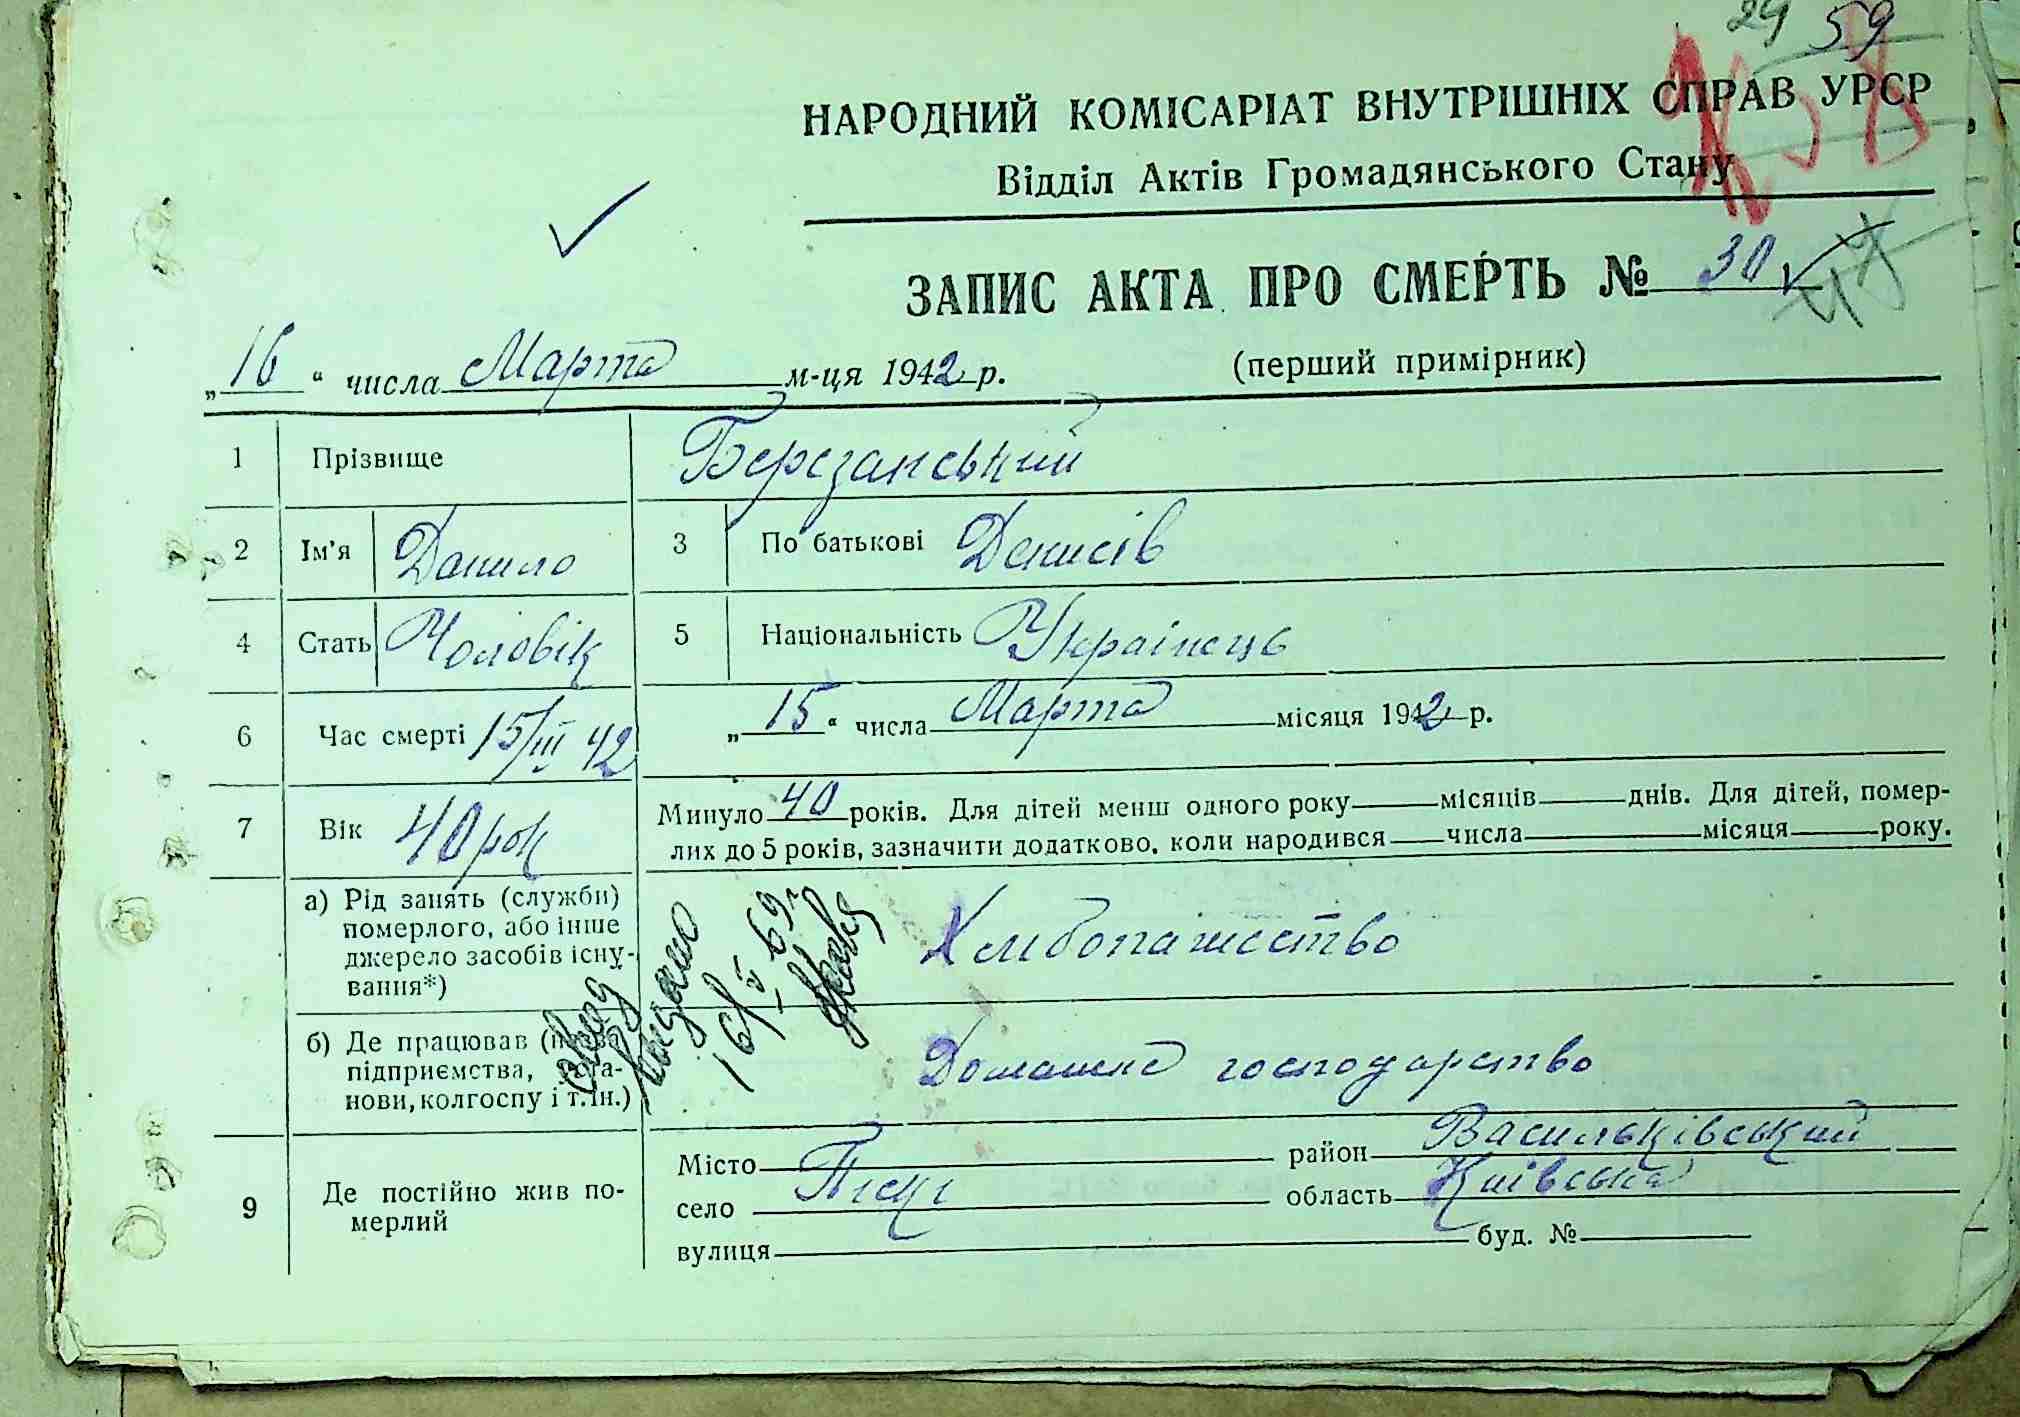 24 59
НАРОДНИЙ КОМІСАРІАТ ВНУТРІШНІХ СПРАВ УРСР
Відділ Актів Громадянського Стану
ЗАПИС АКТА ПРО СМЕРТЬ № 30
„16“ числа Марта м-ця 1942 р. (перший примірник)
1 Прізвище Березанський
2 Ім'я Данило 3 По батькові Денисів
4 Стать Чоловік 5 Національність Українець
6 Час смерті 15/III 42 „15“ числа Марта місяця 1942 р.
7 Вік 40 рок Минуло 40 років. Для дітей менш одного року місяців днів. Для дітей, помер-
лих до 5 років, зазначити додатково, коли народився числа місяця року.
а) Рід занять (служби) померлого, або інше джерело засобів існу-вання*) Хлібопашество
б) Де працював (назва підприємства, уста-нови, колгоспу і т. ін.) Домашнє господарство
видано
9 Де постійно жив по-мерлий
Місто район Васильківський
село область Київська
вулиця буд. №